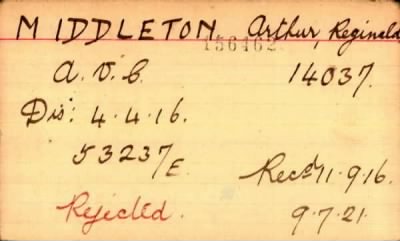 MIDDLETON, Arthur, Reginald
156462
A.V.C. 14037.
Dis: 4.4.16.
53237/E
Recd 11.9.16.
Rejected. 9.7.21.